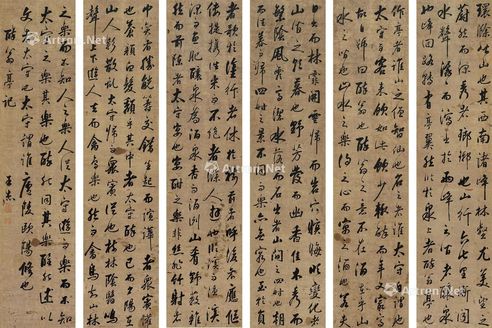 環滁皆山也其西南諸峰林壑尤美望之
蔚然而深秀者瑯琊也山行六七里漸聞
水聲潺潺而瀉出於兩峰之間者釀泉也
峰回路轉有亭翼然臨於泉上者醉翁亭也
作亭者誰山之僧智仙也名之者誰太守自謂也
太守與客來飲於此飲少輒醉而年又最高
故自號曰醉翁也醉翁之意不在酒在乎山
水之間也山水之樂得之心而寓之酒也若夫
日出而林霏開雲歸而巖穴暝晦明變化者
山間之朝暮也野芳發而幽香佳木秀而
繁陰風霜高潔水落而石出者山間之四時也朝
而往暮而歸四時之景不同而樂亦無窮也至於負
者歌於塗行者休於樹前者呼後者應傴
僂提攜往來而不絕者滁人遊也臨溪而漁溪
深而魚肥釀泉為酒泉香而酒洌山肴野蔌雜
然而前陳者太守宴也宴酣之樂非絲非竹射者
中弈者勝觥籌交錯起坐而諠譁者衆賓懽
也蒼顏白髮頹然乎其間者太守醉也已而夕陽在
山人影散亂太守歸而賓客從也樹林陰翳鳴
聲上下遊人去而禽鳥樂也然而禽鳥知山林
之樂而不知人之樂人知從太守遊而樂而不知
太守之樂其樂也醉能同其樂醒能述以
文者太守也太守謂誰廬陵歐陽脩也
醉翁亭記